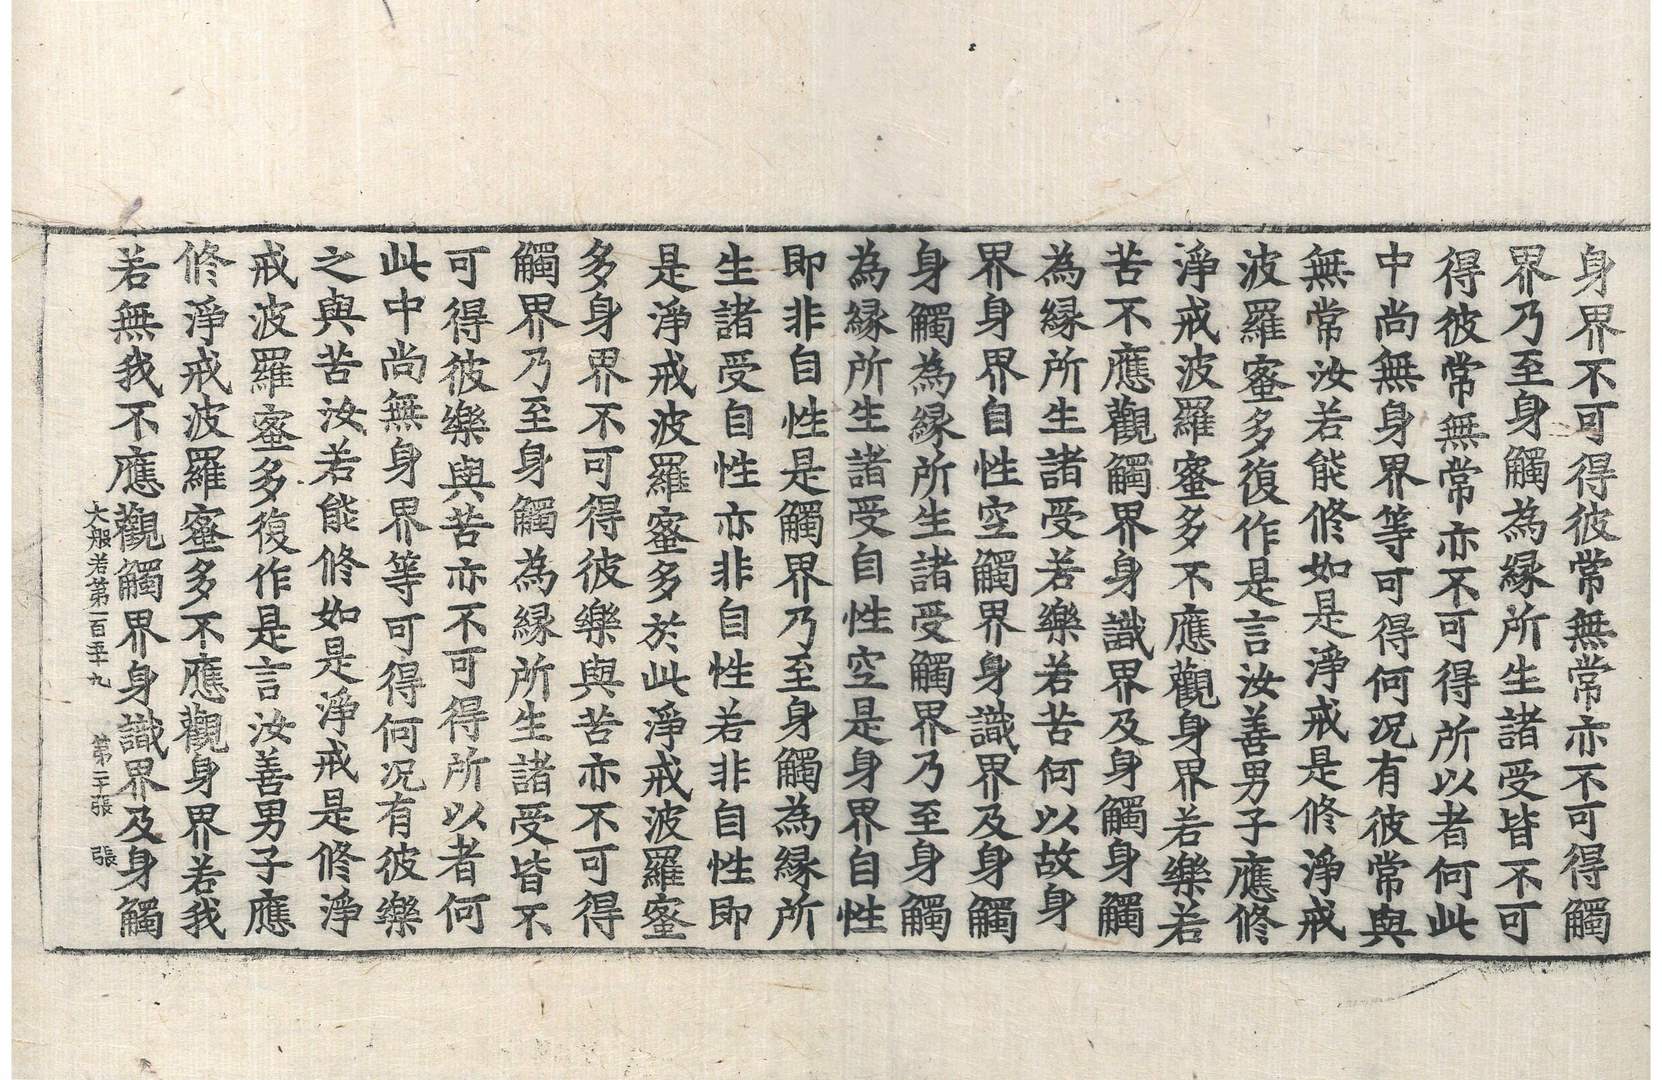 身界不可得彼常無常亦不可得觸
界乃至身觸為縁所生諸受皆不可
得彼常無常亦不可得所以者何此
中尚無身界等可得何况有彼常與
無常汝若能修如是淨戒是修淨戒
波羅蜜多復作是言汝善男子應修
淨戒波羅蜜多不應觀身界若樂若
苦不應觀觸界身識界及身觸身觸
為縁所生諸受若樂若苦何以故身
界身界自性空觸界身識界及身觸
身觸為縁所生諸受觸界乃至身觸
為縁所生諸受自性空是身界自性
即非自性是觸界乃至身觸為縁所
生諸受自性亦非自性若非自性即
是淨戒波羅蜜多於此淨戒波羅蜜
多身界不可得彼樂與苦亦不可得
觸界乃至身觸為縁所生諸受皆不
可得彼樂與苦亦不可得所以者何
此中尚無身界等可得何况有彼樂
之與苦汝若能修如是淨戒是修淨
戒波羅蜜多復作是言汝善男子應
修淨戒波羅蜜多不應觀身界若我
若無我不應觀觸界身識界及身觸
大般若第一百五十九 第二十張 張